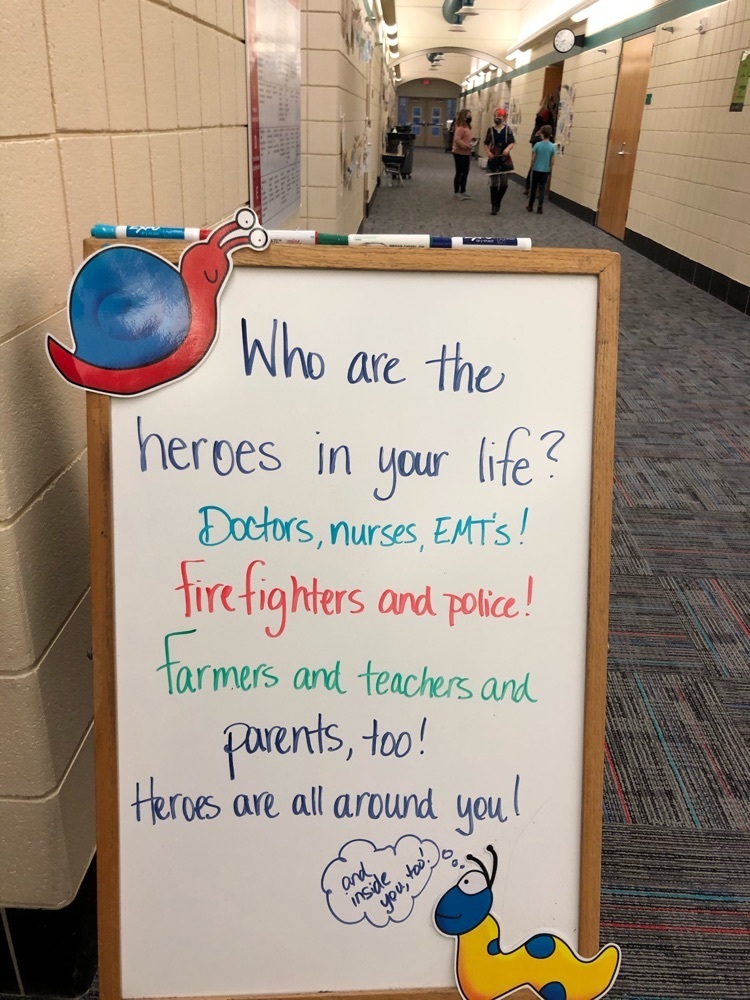 Who are the
heroes in your life?
Doctors, nurses, EMT's!
firefighters and police!
Farmers and teachers and
parents, too!
Heroes are all around you!
and
inside
you, too!